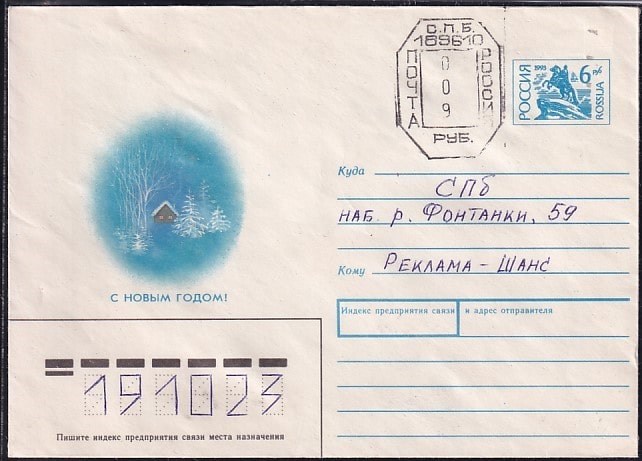 С.П.Б.
189610
ПОЧТА
РОССИЯ
0
0
9
РУБ.
РОССИЯ
1993
6 руб
ROSSIJA
Куда
СПб
наб. р. Фонтанки, 59
Кому
Реклама - Шанс
С НОВЫМ ГОДОМ!
Индекс предприятия связи и адрес отправителя
191023
Пишите индекс предприятия связи места назначения